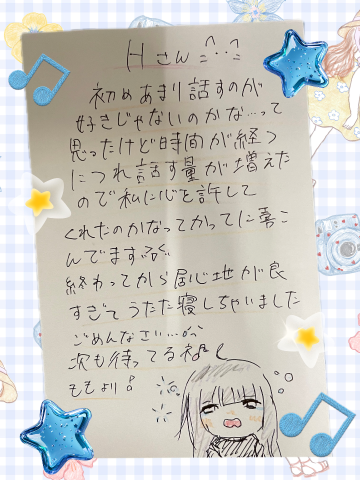 Hさん
初めあまり話すのが
好きじゃないのかな…って
思ったけど時間が経つ
につれ話す量が増えた
ので私に心を許して
くれたのかなってかってに喜こ
んでます
終わってから居心地が良
すぎてうたた寝しちゃいました
ごめんなさい…
次も待ってるね♪
ももより